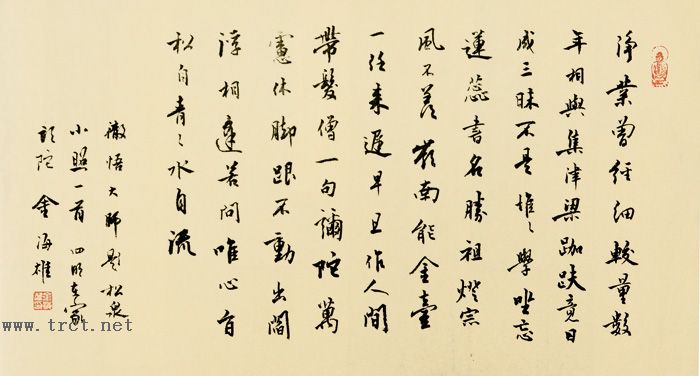 淨業曾經細較量數
年相與集津梁跏趺竟日
成三昧不是堆〻學坐忘
蓮蕊書名勝祖燈宗
風不羨嶺南能金臺
一任來遲早且作人間
帶髮僧一句彌陀萬
慮休脚跟不動出閻
浮相逢若問唯心旨
松自青〻水自流
徹悟大師題松泉
小照一首 四明在家
頭陀 金海雄
www.trct.net